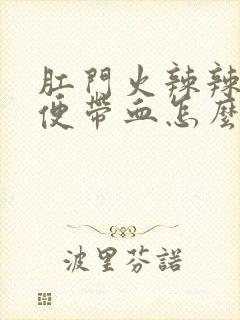 肛門火辣辣
便帶血怎麼
波里芬諾